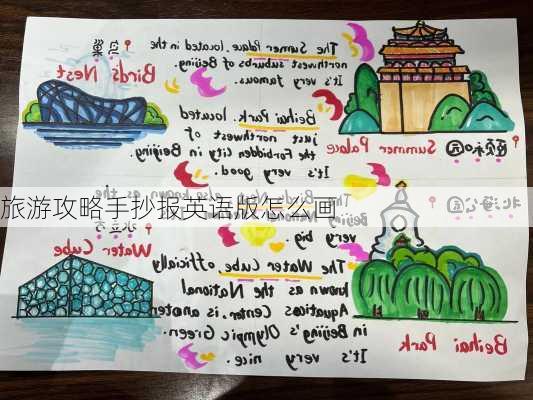 鸟巢
Bird's Nest
The Sumer Palace. located in the
northwest suburbs of Beijing.
It's very famous.
颐和园
Summer Palace
Beihai Park. located
just northwest of
the Forbidden City in Beijing.
It's very good.
旅游攻略手抄报英语版怎么画
also known as the
Beijing
very big.
北海公园
Beihai Park
水立方
Water Cube
The Water Cube officially
known as the National
Aquatics Center, is
in Beijing's Olympic Green.
It's very nice.